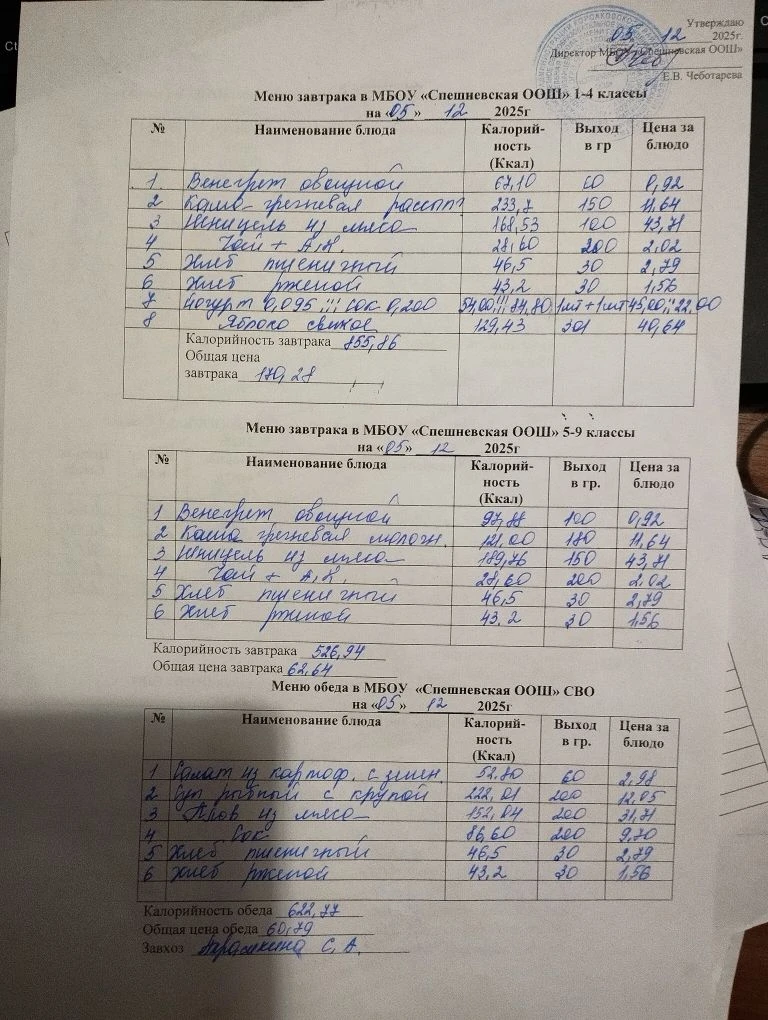 Утверждаю
05 12 2025г.
Директор МБОУ «Спешневская ООШ»
Е.В. Чеботарева
Меню завтрака в МБОУ «Спешневская ООШ» 1-4 классы
на «05» 12 2025г
№ Наименование блюда Калорий-ность (Ккал) Выход в гр Цена за блюдо
1 Венегрет овощной 67,10 60 0,92
2 Каша гречневая рассып 233,7 150 11,64
3 Шницель из мяса 168,53 100 43,71
4 Чай + А,К. 28,60 200 2,02
5 Хлеб пшеничный 46,5 30 2,79
6 Хлеб рженой 43,2 30 1,56
7 Йогурт 0,095 ;;; сок 0,200 54,00;;; 84,80 1шт+1шт 45,00;; 22,00
8 Яблоко свежое 129,43 301 40,64
Калорийность завтрака 855,86
Общая цена
завтрака 170,28
Меню завтрака в МБОУ «Спешневская ООШ» 5-9 классы
на «05» 12 2025г
№ Наименование блюда Калорий-ность (Ккал) Выход в гр. Цена за блюдо
1 Венегрет овощной 97,88 100 0,92
2 Каша гречневая молочн. 121,00 180 11,64
3 Шницель из мяса 189,76 150 43,71
4 Чай + А,К. 28,60 200 2,02
5 Хлеб пшеничный 46,5 30 2,79
6 Хлеб рженой 43,2 30 1,56
Калорийность завтрака 526,94
Общая цена завтрака 62,64
Меню обеда в МБОУ «Спешневская ООШ» СВО
на «05» 12 2025г
№ Наименование блюда Калорий-ность (Ккал) Выход в гр. Цена за блюдо
1 Салат из картоф. с зелен. 52,80 60 2,98
2 Суп рыбный с крупой 222,01 200 12,05
3 Плов из мяса 152,04 200 31,71
4 Сок 86,60 200 9,70
5 Хлеб пшеничный 46,5 30 2,79
6 Хлеб рженой 43,2 30 1,56
Калорийность обеда 622,77
Общая цена обеда 60,79
Завхоз С. А.